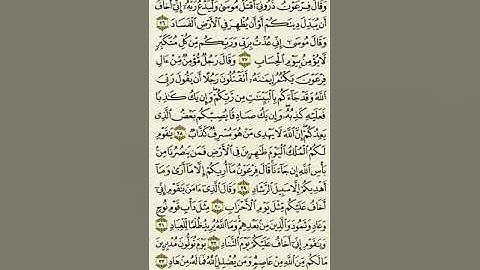 وَقَالَ فِرْعَوْنُ ذَرُونِىٓ أَقْتُلْ مُوسَىٰ وَلْيَدْعُ رَبَّهُۥٓ إِنِّىٓ أَخَافُ
أَن يُبَدِّلَ دِينَكُمْ أَوْ أَن يُظْهِرَ فِى ٱلْأَرْضِ ٱلْفَسَادَ ٢٦
وَقَالَ مُوسَىٰٓ إِنِّى عُذْتُ بِرَبِّى وَرَبِّكُم مِّن كُلِّ مُتَكَبِّرٍ
لَّا يُؤْمِنُ بِيَوْمِ ٱلْحِسَابِ ٢٧ وَقَالَ رَجُلٌ مُّؤْمِنٌ مِّنْ ءَالِ
فِرْعَوْنَ يَكْتُمُ إِيمَٰنَهُۥٓ أَتَقْتُلُونَ رَجُلًا أَن يَقُولَ رَبِّىَ
ٱللَّهُ وَقَدْ جَآءَكُم بِٱلْبَيِّنَٰتِ مِن رَّبِّكُمْ وَإِن يَكُ كَٰذِبًا
فَعَلَيْهِ كَذِبُهُۥ وَإِن يَكُ صَادِقًا يُصِبْكُم بَعْضُ ٱلَّذِى
يَعِدُكُمْ إِنَّ ٱللَّهَ لَا يَهْدِى مَنْ هُوَ مُسْرِفٌ كَذَّابٌ ٢٨ يَٰقَوْمِ
لَكُمُ ٱلْمُلْكُ ٱلْيَوْمَ ظَٰهِرِينَ فِى ٱلْأَرْضِ فَمَن يَنصُرُنَا مِنۢ
بَأْسِ ٱللَّهِ إِن جَآءَنَا قَالَ فِرْعَوْنُ مَآ أُرِيكُمْ إِلَّا مَآ أَرَىٰ وَمَآ
أَهْدِيكُمْ إِلَّا سَبِيلَ ٱلرَّشَادِ ٢٩ وَقَالَ ٱلَّذِىٓ ءَامَنَ يَٰقَوْمِ إِنِّىٓ
أَخَافُ عَلَيْكُم مِّثْلَ يَوْمِ ٱلْأَحْزَابِ ٣٠ مِثْلَ دَأْبِ قَوْمِ نُوحٍ
وَعَادٍ وَثَمُودَ وَٱلَّذِينَ مِنۢ بَعْدِهِمْ وَمَا ٱللَّهُ يُرِيدُ ظُلْمًا لِّلْعِبَادِ
٣١ وَيَٰقَوْمِ إِنِّىٓ أَخَافُ عَلَيْكُمْ يَوْمَ ٱلتَّنَادِ ٣٢ يَوْمَ تُوَلُّونَ مُدْبِرِينَ
مَا لَكُم مِّنَ ٱللَّهِ مِنْ عَاصِمٍ وَمَن يُضْلِلِ ٱللَّهُ فَمَا لَهُۥ مِنْ هَادٍ ٣٣